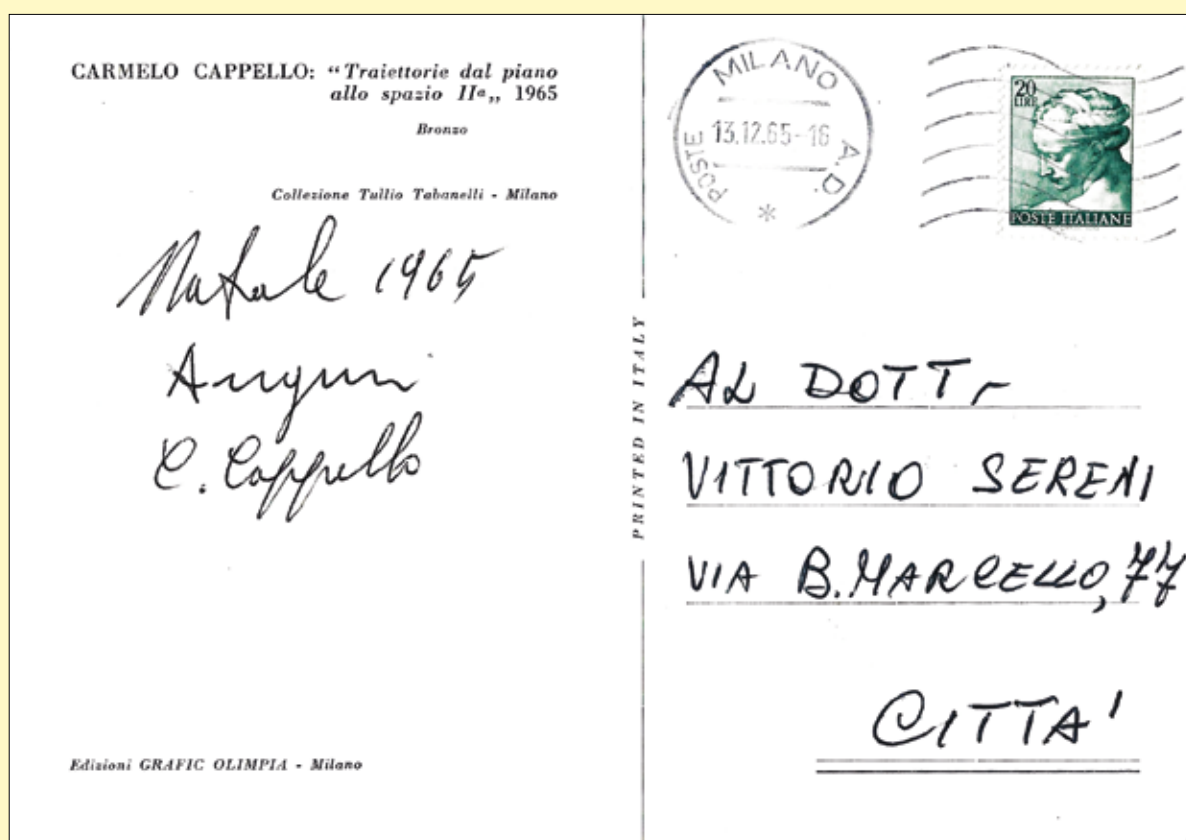 CARMELO CAPPELLO: “Traiettorie dal piano
allo spazio IIª„ 1965
Bronzo
Collezione Tullio Tabanelli - Milano
Natale 1965
Auguri
C. Cappello
Edizioni GRAFIC OLIMPIA - Milano
PRINTED IN ITALY
POSTE MILANO A.D.
13.12.65-16
*
20
LIRE
POSTE ITALIANE
AL DOTT.
VITTORIO SERENI
VIA B. MARCELLO, 77
CITTA'